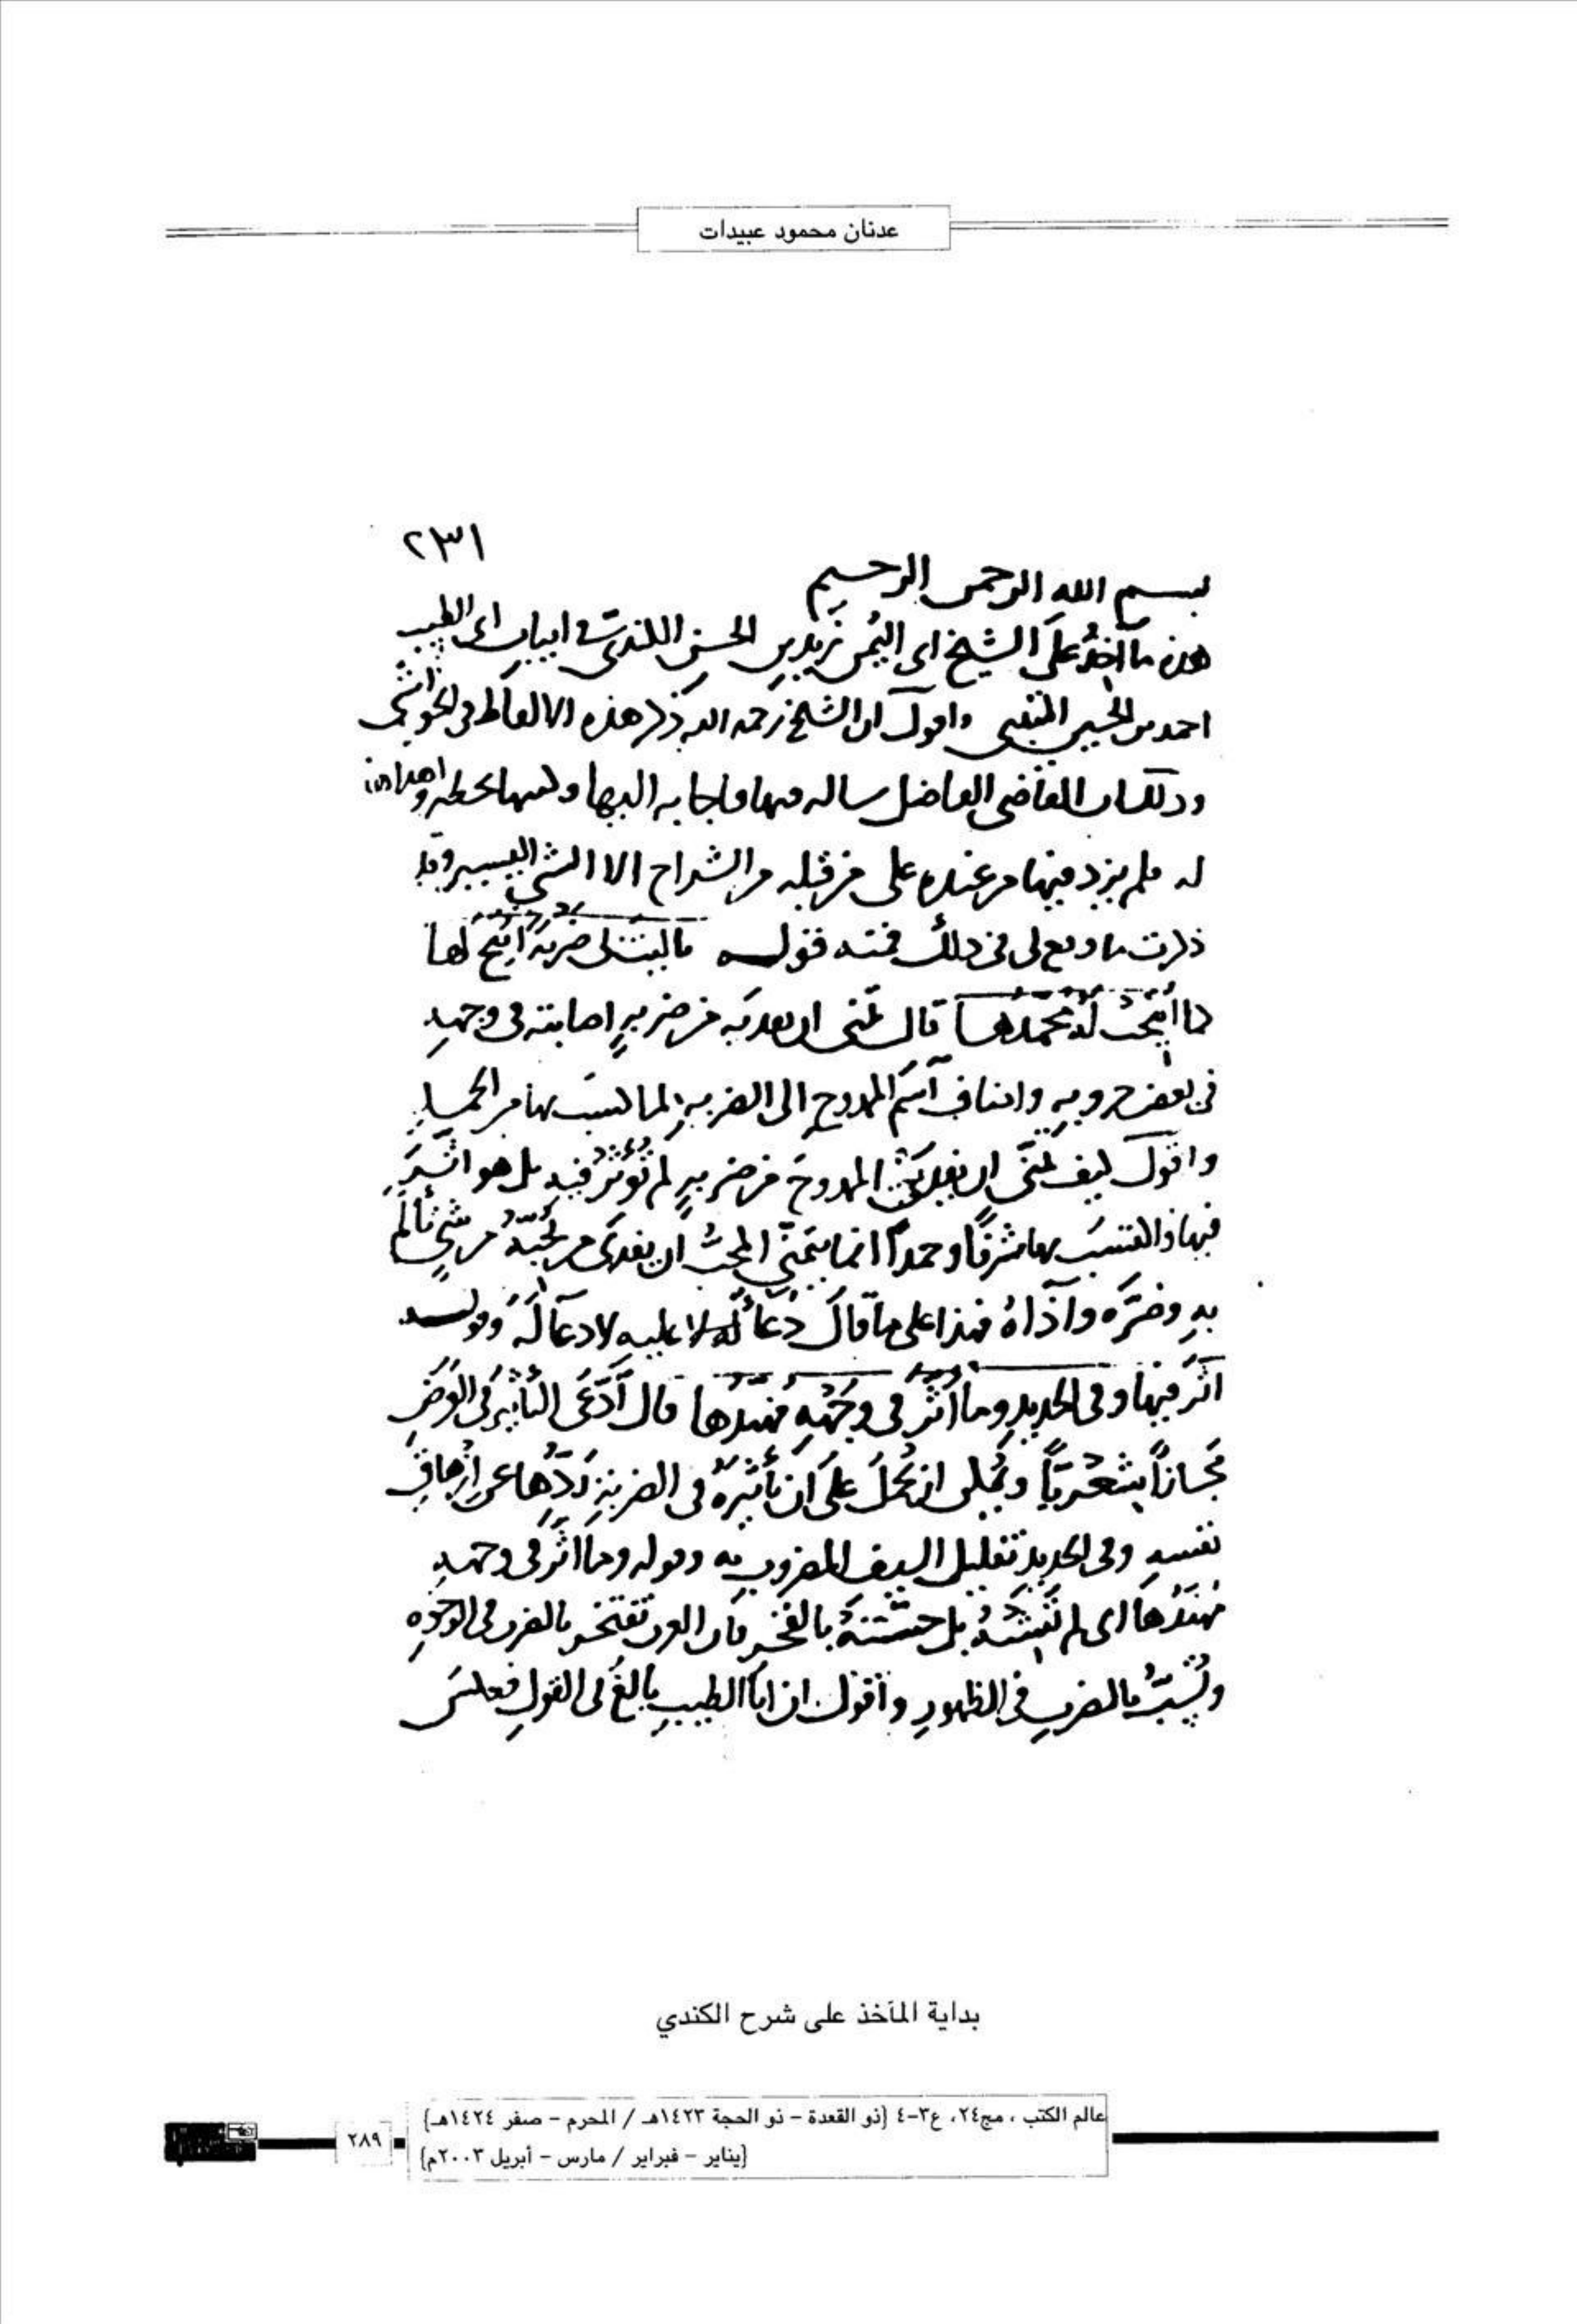 عدنان محمود عبيدات
٢٣١
بسم الله الرحمن الرحيم
هذه مآخذ على الشيخ ابى اليُمن زيد بن الحسن الكندى فى ابيات ابى الطيب
احمد بن الحسين المتنبى واقول ان الشيخ رحمه الله ذكر هذه الالفاظ فى الحواشى
وذلك ان القاضى الفاضل ساله فيها فاجابه اليها وكتبها بخطه واهداها
له فلم يزد فيها من عنده على من قبله من الشراح الا الشى اليسير وقد
ذكرت ما وقع لى فى ذلك فمنه قوله يا ليت لى ضربةً اُتيح لها
كما أُتيحت له محمدها قال تمنى ان يفديه من ضربةٍ اصابته فى وجههِ
فى بعض حروبهِ واضاف اسم الممدوح الى الضربةِ لما كسب بها من الحمدِ
واقول كيف تمنّى ان يفدى الممدوحَ من ضربةٍ لم تُؤثر فيه بل هو اثّرَ
فيها واكتسَبَ بها شرفًا وحمدًا انما يتمنّى المحبُّ ان يفدى من يُحبّهُ من شىٍ تألّم
بهِ وضرَّه وآذاهُ فهذا على ما قال دُعآءٌ له لا عليه لا دعآ لهُ وقوله
اثّر فيها وفى الحديدِ وما اثّر فى وجههِ مُهنّدُها قال ادّعَى التأثير فى العَرَضِ
مجازًا شعريًّا ويمكن ان يحملَ على ان تأثيرهُ فى الضربةِ ردّها عن ازهاقِ
نفسهِ وفى الحديد تفليل السيف المضروب به وقوله وما اثّر فى وجههِ
مهندُها اى لم تَشِنْهُ بل حسّنتهُ بالفخر فان العرب تفتخر بالضرب فى الوجُوهِ
وتُسَبُّ بالضربِ فى الظهورِ واقول ان ابا الطيبِ بالغَ فى القولِ فعكسَ
بداية المآخذ على شرح الكندي
عالم الكتب ، مج٢٤، ع٣-٤ {ذو القعدة - ذو الحجة ١٤٢٣هـ / المحرم - صفر ١٤٢٤هـ}
{يناير - فبراير / مارس - أبريل ٢٠٠٣م}
٢٨٩